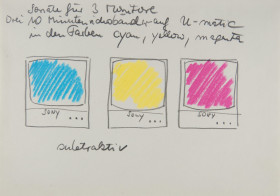 Sonate für 3 Monitore
Drei 10 Minuten Videobänder auf U-matic
in den Farben cyan, yellow, magenta
SONY
SONY
SONY
subtraktiv